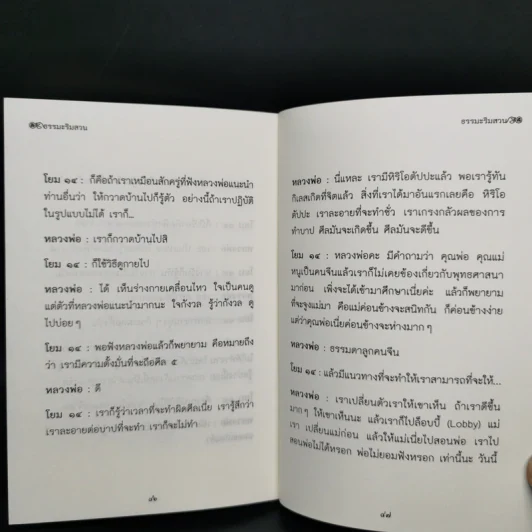 ธรรมะริมสวน
โยม ๑๔ : ก็คือถ้าเราเหมือนสักครู่ที่ฟังหลวงพ่อแนะนำ
ท่านอื่นว่า ให้กวาดบ้านไปก็รู้ตัว อย่างนี้ถ้าเราปฏิบัติ
ในรูปแบบไม่ได้ เราก็...
หลวงพ่อ : เราก็กวาดบ้านไปสิ
โยม ๑๔ : ก็ใช้วิธีดูกายไป
หลวงพ่อ : ได้ เห็นร่างกายเคลื่อนไหว ใจเป็นคนดู
แต่ตัวที่หลวงพ่อแนะนำมากนะ ใจกังวล รู้ว่ากังวล ดู
ไปบ่อย ๆ
โยม ๑๔ : พอฟังหลวงพ่อแล้วก็พยายาม คือหมายถึง
ว่า เรามีความตั้งมั่นที่จะถือศีล ๕
หลวงพ่อ : ดี
โยม ๑๔ : เราก็รู้ว่าเวลาที่จะทำผิดศีลเนี่ย เรารู้สึกว่า
เราละอายต่อบาปที่จะทำ เราก็จะไม่ทำ
๔๖
ธรรมะริมสวน
หลวงพ่อ : นี่แหละ เรามีหิริโอตัปปะแล้ว พอเรารู้ทัน
กิเลสเกิดที่จิตแล้ว สิ่งที่เราได้มาอันแรกเลยคือ หิริโอ
ตัปปะ เราละอายที่จะทำชั่ว เราเกรงกลัวผลของการ
ทำบาป ศีลมันจะเกิดขึ้น ศีลมันจะดีขึ้น
โยม ๑๔ : หลวงพ่อคะ มีคำถามว่า คุณพ่อ คุณแม่
หนูเป็นคนจีนแล้วเราก็ไม่เคยข้องเกี่ยวกับพุทธศาสนา
มาก่อน เพิ่งจะได้เข้ามาศึกษาเนี่ยค่ะ แล้วก็พยายาม
ที่จะจูงแม่มา คือแม่ค่อนข้างจะสนิทกัน ก็ค่อนข้างง่าย
แต่ว่าคุณพ่อเนี่ยค่อนข้างจะห่างมาก ๆ
หลวงพ่อ : ธรรมดาลูกคนจีน
โยม ๑๔ : แล้วมีแนวทางที่จะทำให้เราสามารถที่จะให้...
หลวงพ่อ : เราเปลี่ยนตัวเราให้เขาเห็น ถ้าเราดีขึ้น
มาก ๆ ให้เขาเห็นนะ แล้วเราก็ไปล็อบบี้ (Lobby) แม่
เรา เปลี่ยนแม่ก่อน แล้วให้แม่เนี่ยไปสอนพ่อ เราไป
สอนพ่อไม่ได้หรอก พ่อไม่ยอมฟังหรอก เท่านี้นะ วันนี้
๔๗